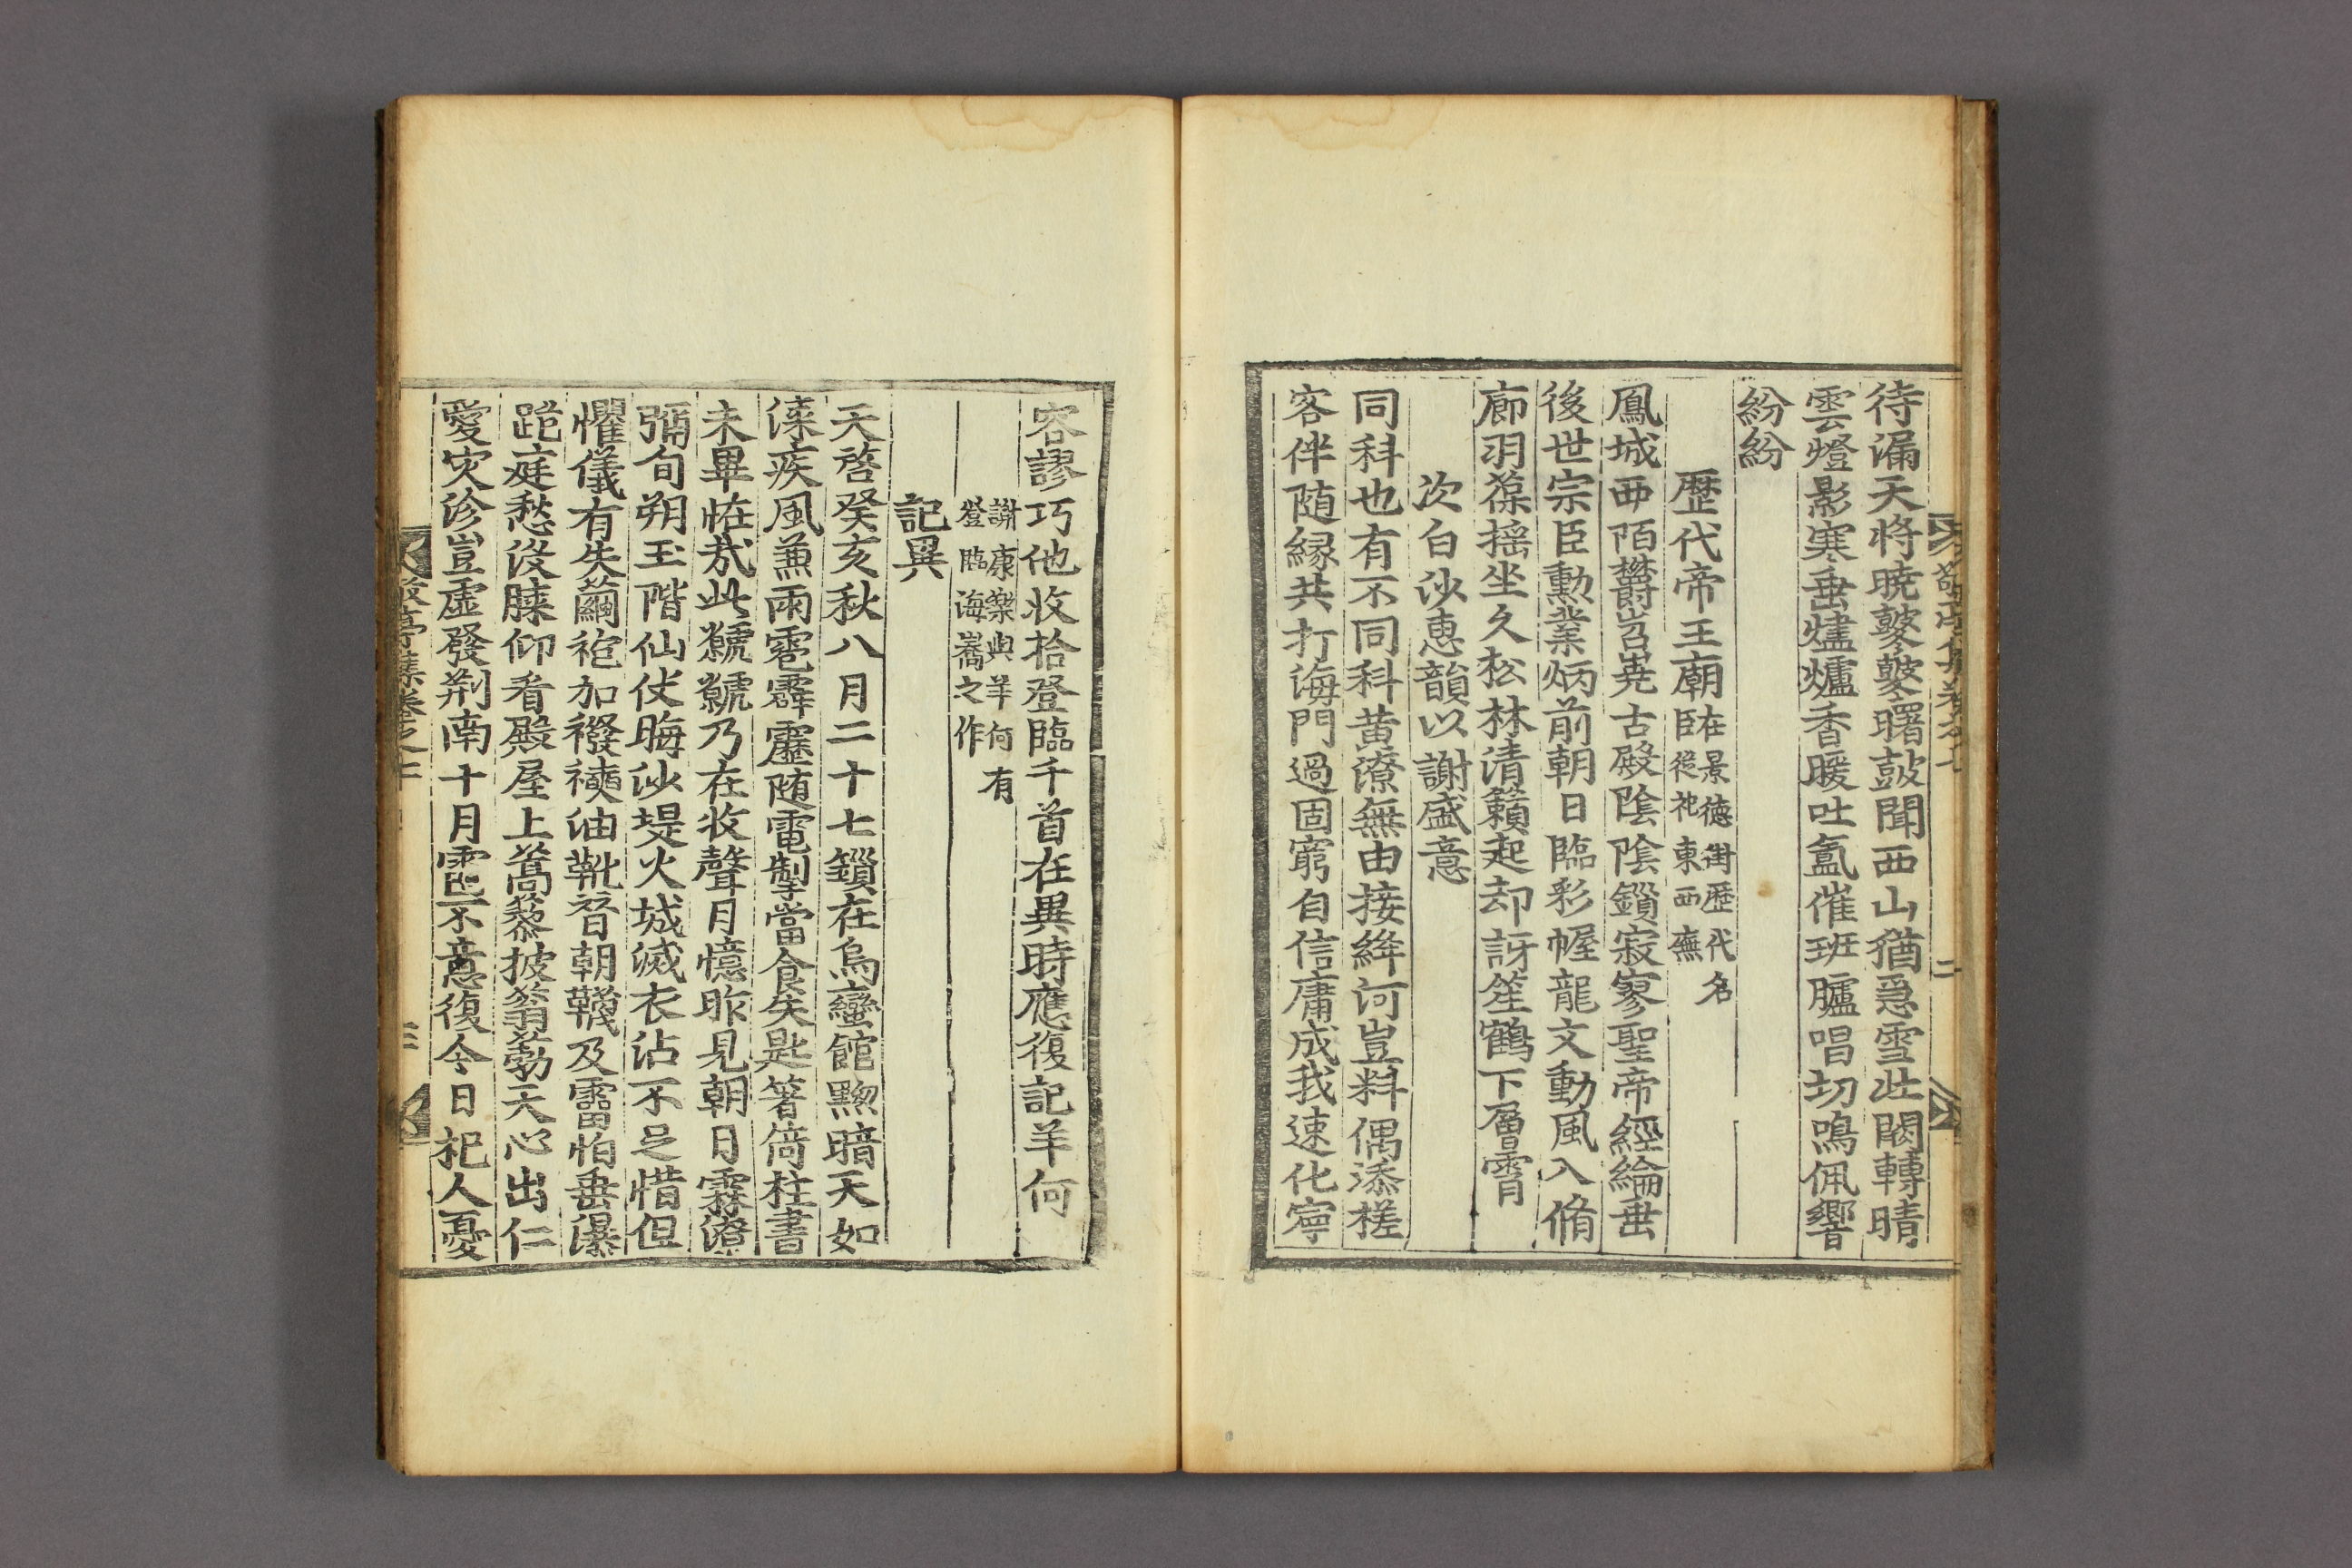 待漏天將曉鼕鼕曙鼓聞西山猶急雪北闕轉晴
雲燈影寒垂燼爐香暖吐氳催班臚唱切鳴佩響
紛紛
歷代帝王廟
在景德街歷代名
臣從祀東西廡
鳳城西陌欝岧嶤古殿陰陰鎻寂寥聖帝經綸垂
後世宗臣勳業炳前朝日臨彩幄龍文動風入脩
廊羽葆摇坐久松林清籟起却訝笙鶴下層霄
次白沙惠韻以謝盛意
同科也有不同科黄潦無由接絳河豈料偶添槎
客伴随縁共打海門過固窮自信庸成我速化寧
容謬巧他收拾登臨千首在異時應復記羊何
謝康樂與羊何有
登臨海嶠之作
記異
天啓癸亥秋八月二十七鎻在烏蠻館黝暗天如
漆疾風兼雨雹霹靂随電掣當食失匙箸倚柱書
未畢怪㢤此虩虩乃在收聲月憶昨見朝日霖潦
彌旬朔玉階仙仗晦沙堤火城滅衣沾不足惜但
懼儀有失繭袍加襏襫油靴晉朝韈及霤怕垂瀑
跪庭愁没膝仰看殿屋上蒿藜披蓊勃天心出仁
愛灾沴豈虚發荆南十月雹不意復今日杞人憂
二
三